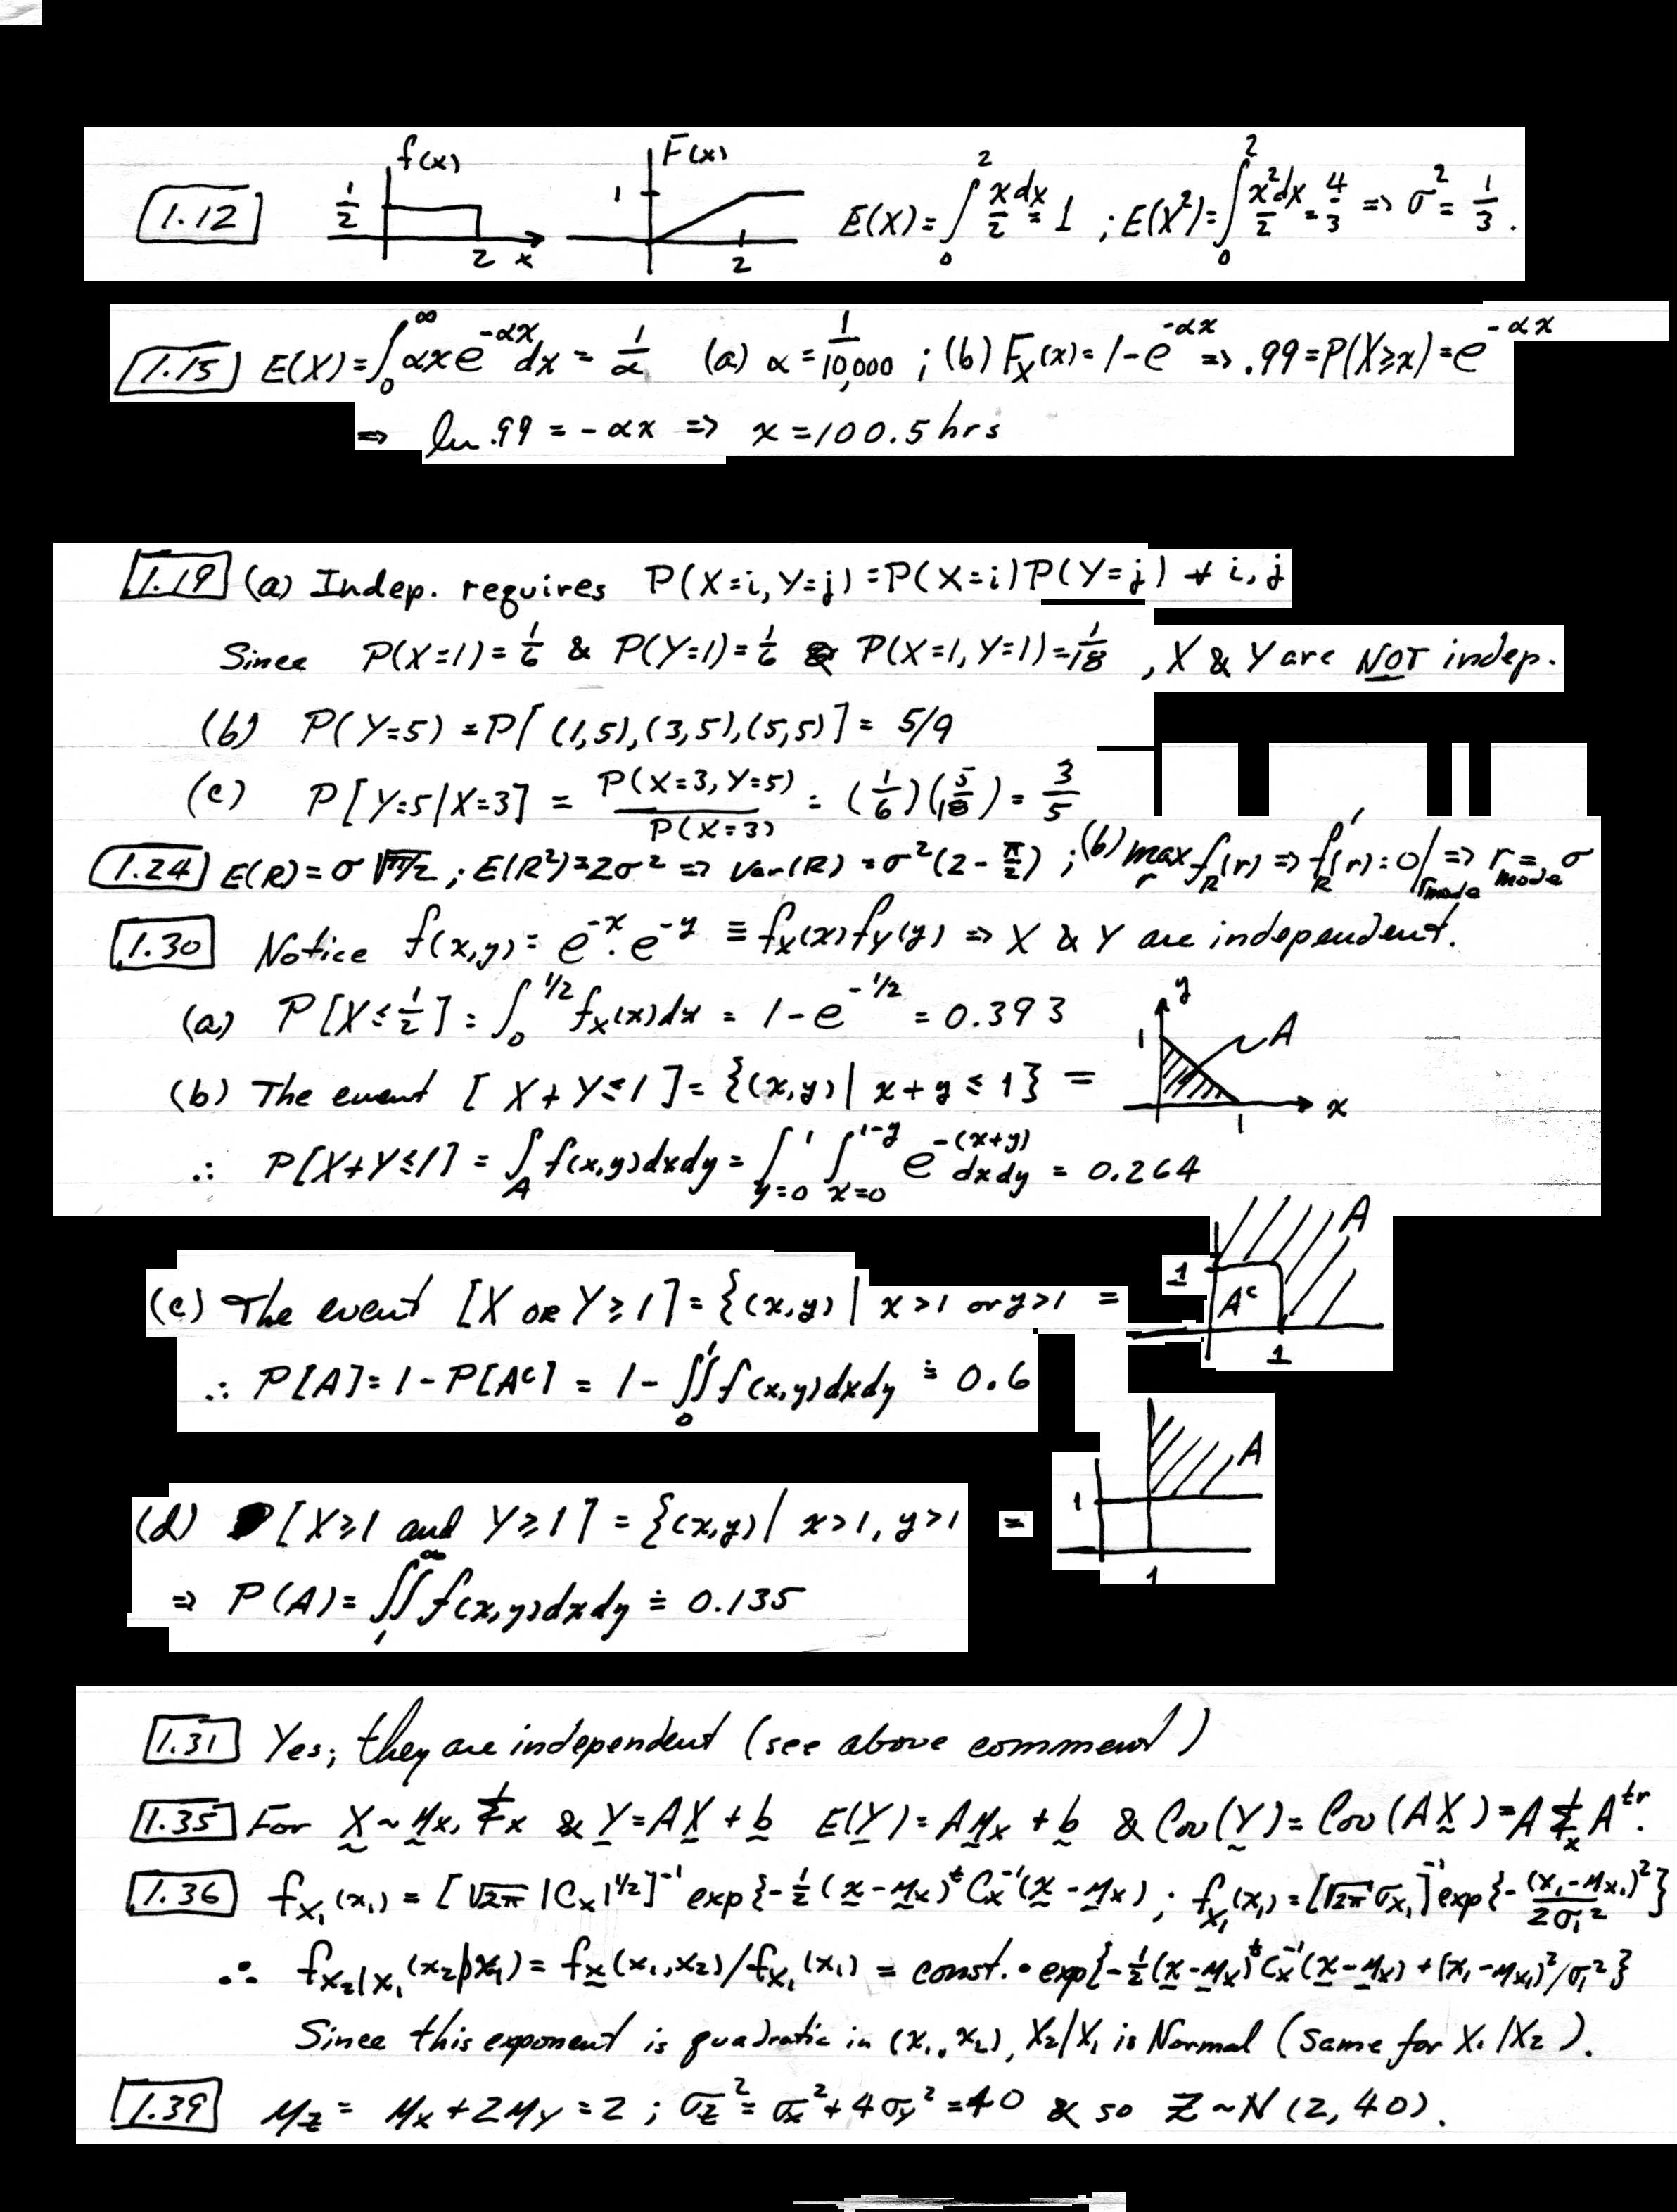 1.12 f(x) 1/2 2 x F(x) 1 2 E(X) = ∫₀² x dx/2 = 1 ; E(X²) = ∫₀² x²dx/2 = 4/3 ⇒ σ² = 1/3 .
1.15 E(X) = ∫₀^∞ αx e^{-αx} dx = 1/α (a) α = 1/10,000 ; (b) F_X(x) = 1 - e^{-αx} ⇒ .99 = P(X ≥ x) = e^{-αx}
⇒ ln .99 = - αx ⇒ x = 100.5 hrs
1.19 (a) Indep. requires P(X=i, Y=j) = P(X=i)P(Y=j) ∀ i, j
Since P(X=1) = 1/6 & P(Y=1) = 1/6 & P(X=1, Y=1) = 1/18 , X & Y are NOT indep.
(b) P(Y=5) = P[ (1,5), (3,5), (5,5) ] = 5/9
(c) P[Y=5|X=3] = P(X=3, Y=5)/P(X=3) = (1/6)(5/18) = 3/5
1.24 E(R) = σ√π/2 ; E(R²) = 2σ² ⇒ Var(R) = σ²(2 - π/2) ; (b) max_r f_R(r) ⇒ f'_R(r) = 0|_{r_mode} ⇒ r_mode = σ
1.30 Notice f(x,y) = e^{-x} · e^{-y} ≡ f_X(x) f_Y(y) ⇒ X & Y are independent.
(a) P[X ≤ 1/2] = ∫₀^{1/2} f_X(x)dx = 1 - e^{-1/2} = 0.393
(b) The event [ X + Y ≤ 1 ] = {(x,y) | x + y ≤ 1} = y 1 A 1 x
∴ P[X+Y ≤ 1] = ∫_A f(x,y)dxdy = ∫_{y=0}^{1} ∫_{x=0}^{1-y} e^{-(x+y)} dxdy = 0.264
(c) The event [X OR Y ≥ 1] = {(x,y) | x > 1 or y > 1 = 1 A Aᶜ 1
∴ P[A] = 1 - P[Aᶜ] = 1 - ∫∫₀¹ f(x,y)dxdy ≐ 0.6
(d) [X ≥ 1 and Y ≥ 1] = {(x,y) | x > 1, y > 1 = 1 A 1
⇒ P(A) = ∫∫₁^∞ f(x,y)dxdy ≐ 0.135
1.31 Yes; they are independent (see above comment)
1.35 For X ~ μx, Σx & Y = AX + b E(Y) = Aμx + b & Cov(Y) = Cov(AX) = A Σx A^{tr}.
1.36 f_{X₁}(x₁) = [√2π |Cx|^{1/2}]^{-1} exp{-1/2 (x - μx)^t Cx^{-1} (x - μx) ; f_{X₁}(x₁) = [√2π σ_{X₁}]^{-1} exp{- (x₁ - μx₁)²/2σ₁²}
∴ f_{X₂|X₁}(x₂|x₁) = f_X(x₁,x₂)/f_{X₁}(x₁) = const. · exp{-1/2 (x - μx)^t Cx^{-1} (x - μx) + (x₁ - μx₁)²/σ₁²}
Since this exponent is quadratic in (x₁, x₂), X₂|X₁ is Normal (Same for X₁|X₂ ).
1.39 μ_Z = μ_X + 2μ_Y = 2 ; σ_Z² = σ_X² + 4σ_Y² = 40 & so Z ~ N(2, 40).